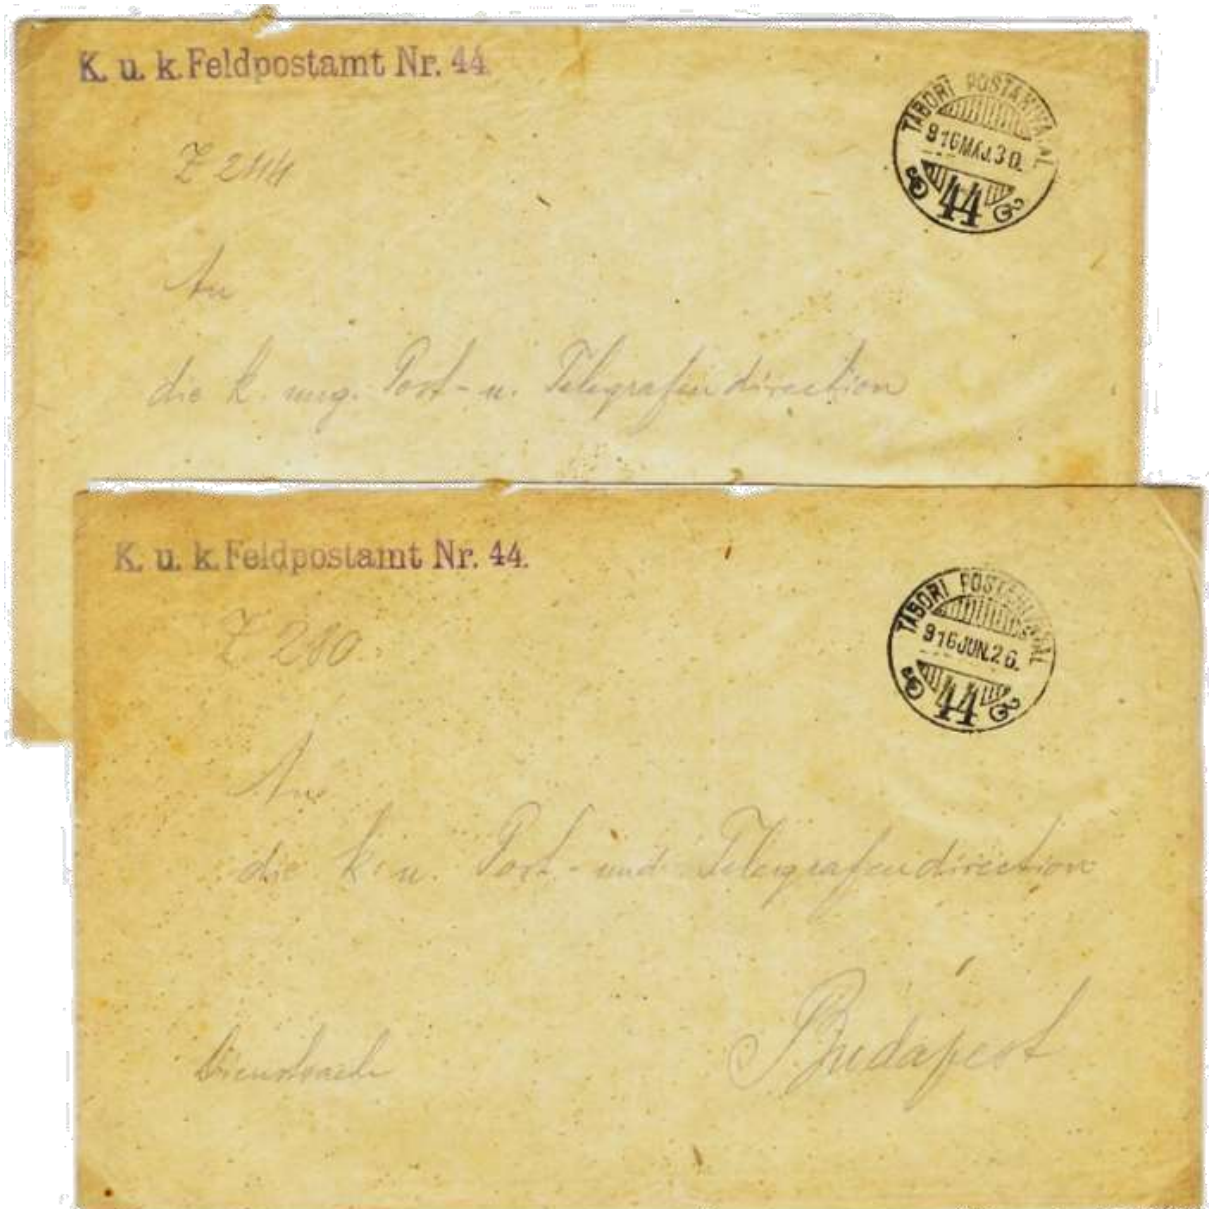 K. u. k. Feldpostamt Nr. 44.
TABORI POSTAHIVATAL
916 MÁJ. 30.
44
Z 244
An
die k. ung. Post- u. Telegrafendirection
K. u. k. Feldpostamt Nr. 44.
TABORI POSTAHIVATAL
916 JUN. 26.
44
Z 280
An
die k. u. Post- und Telegrafendirection
Budapest
Dienstsache